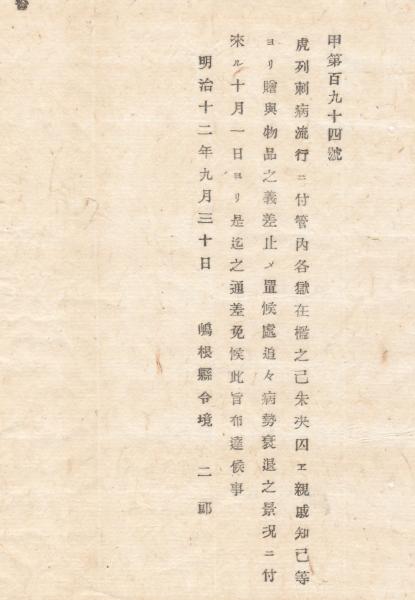 甲第百九十四號
虎列刺病流行ニ付管內各獄在檻之已未决囚エ親戚知己等
ヨリ贈與物品之義差止メ置候處追々病勢衰退之景况ニ付
來ル十月一日ヨリ是迄之通差免候此旨布達候事
明治十二年九月三十日　嶋根縣令境　二郎